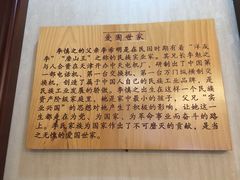 爱国世家
李慎之的父亲李希明是在民国时期有着“洋灰
李”“唐山王”之称的民族实业家。其兄长李勉之
与人合资在天津开办中天电机厂，研制出了中国第
一部电话机、第一台交换机、第一台万门纵横制交
换机，创造了属于中国人自己的民族品牌，是
民族工业发展的骄傲。李慎之出生在这样一个民族
资产阶级家庭里，她是家中最小的孩子，父兄“实
业兴国”的思想对她产生了积极的影响，让她这一
生都走在为党、为国家、为革命事业而奋斗的路
上。李氏家族为国家作出了不可磨灭的贡献，是当
之无愧的爱国世家。